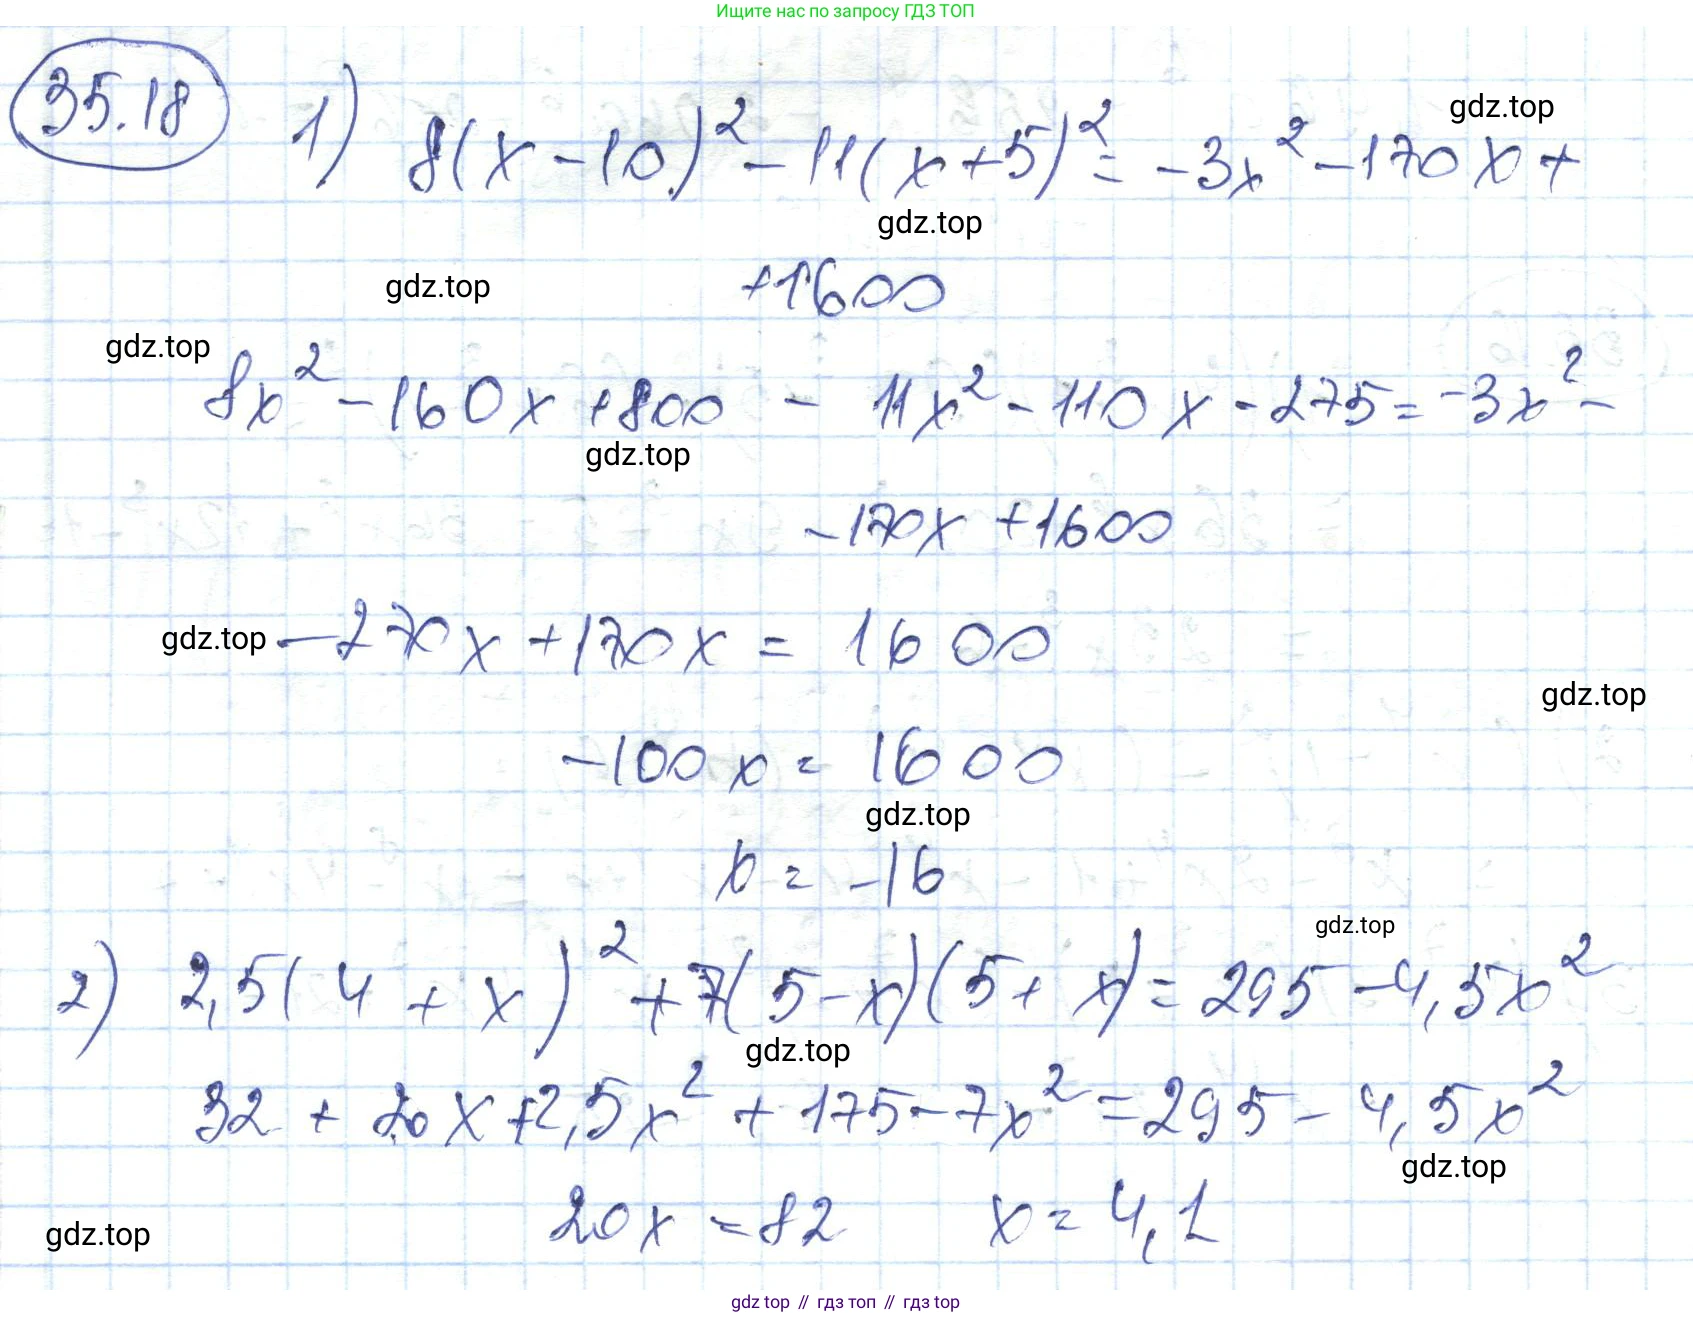 Ищите нас по запросу ГДЗ ТОП
35.18 1) 8(x-10)² - 11(x+5)² = -3x² - 170x +
gdz.top
gdz.top
+1600
gdz.top
gdz.top
8x² - 160x + 800 - 11x² - 110x - 275 = -3x² -
gdz.top
- 170x + 1600
gdz.top
-270x + 170x = 1600
gdz.top
-100x = 1600
gdz.top
x = -16
gdz.top
2) 2,5(4 + x)² + 7(5-x)(5+x) = 295 - 4,5x²
gdz.top
32 + 20x + 2,5x² + 175 - 7x² = 295 - 4,5x²
gdz.top
20x = 82 x = 4,1
gdz.top
gdz top // гдз топ // гдз top